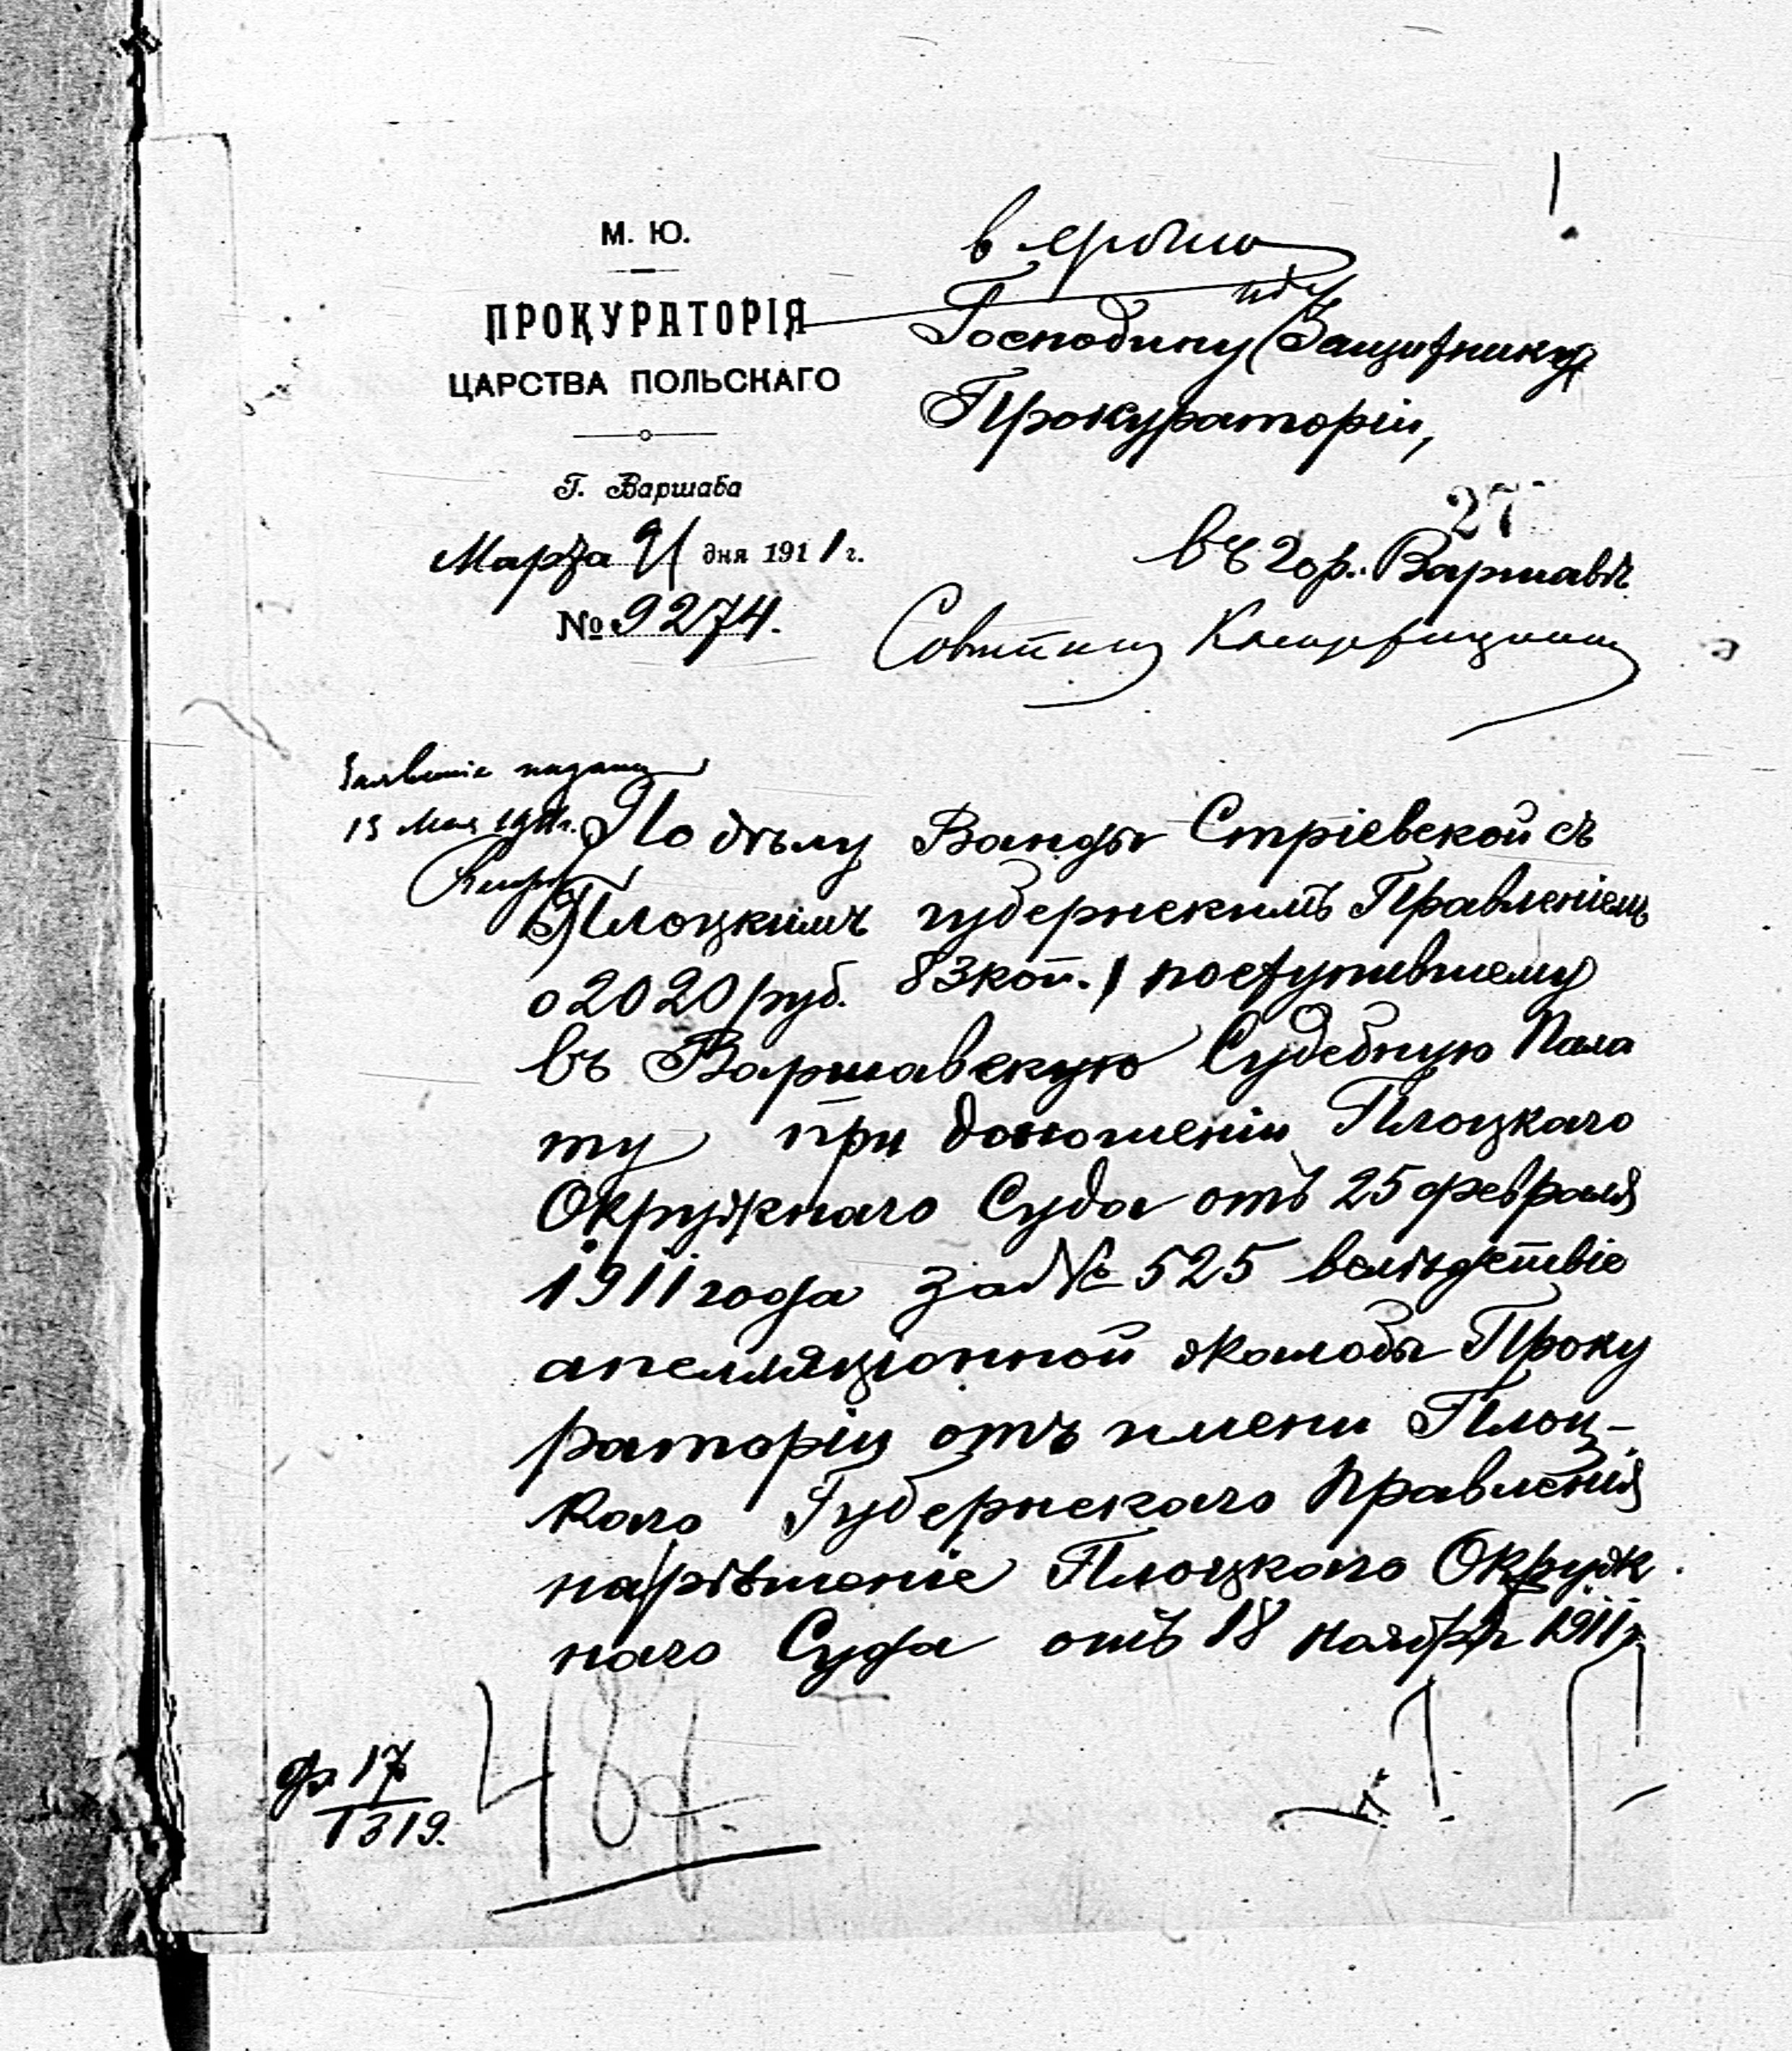 М. Ю.
ПРОКУРАТОРІЯ
ЦАРСТВА ПОЛЬСКАГО
Г. Варшава
Марта 9 дня 1911 г.
№ 9274.
Господину Защитнику
Прокураторіи,
27
въ гор. Варшавѣ.
Заявленіе подано
13 Мая 1911 г.
По дѣлу Ванды Стріевской съ
Плоцкимъ губернскимъ Правленіемъ
о 2020 руб. 83 коп., поступившему
въ Варшавскую Судебную Пала
ту при доношеніи Плоцкаго
Окружнаго Суда отъ 25 февраля
1911 года за № 525 вслѣдствіе
апелляціонной жалобы Проку
раторіи отъ имени Плоц-
каго Губернскаго Правленія
на рѣшеніе Плоцкаго Окруж
наго Суда отъ 18 ноября 1911 г.
17
1319.